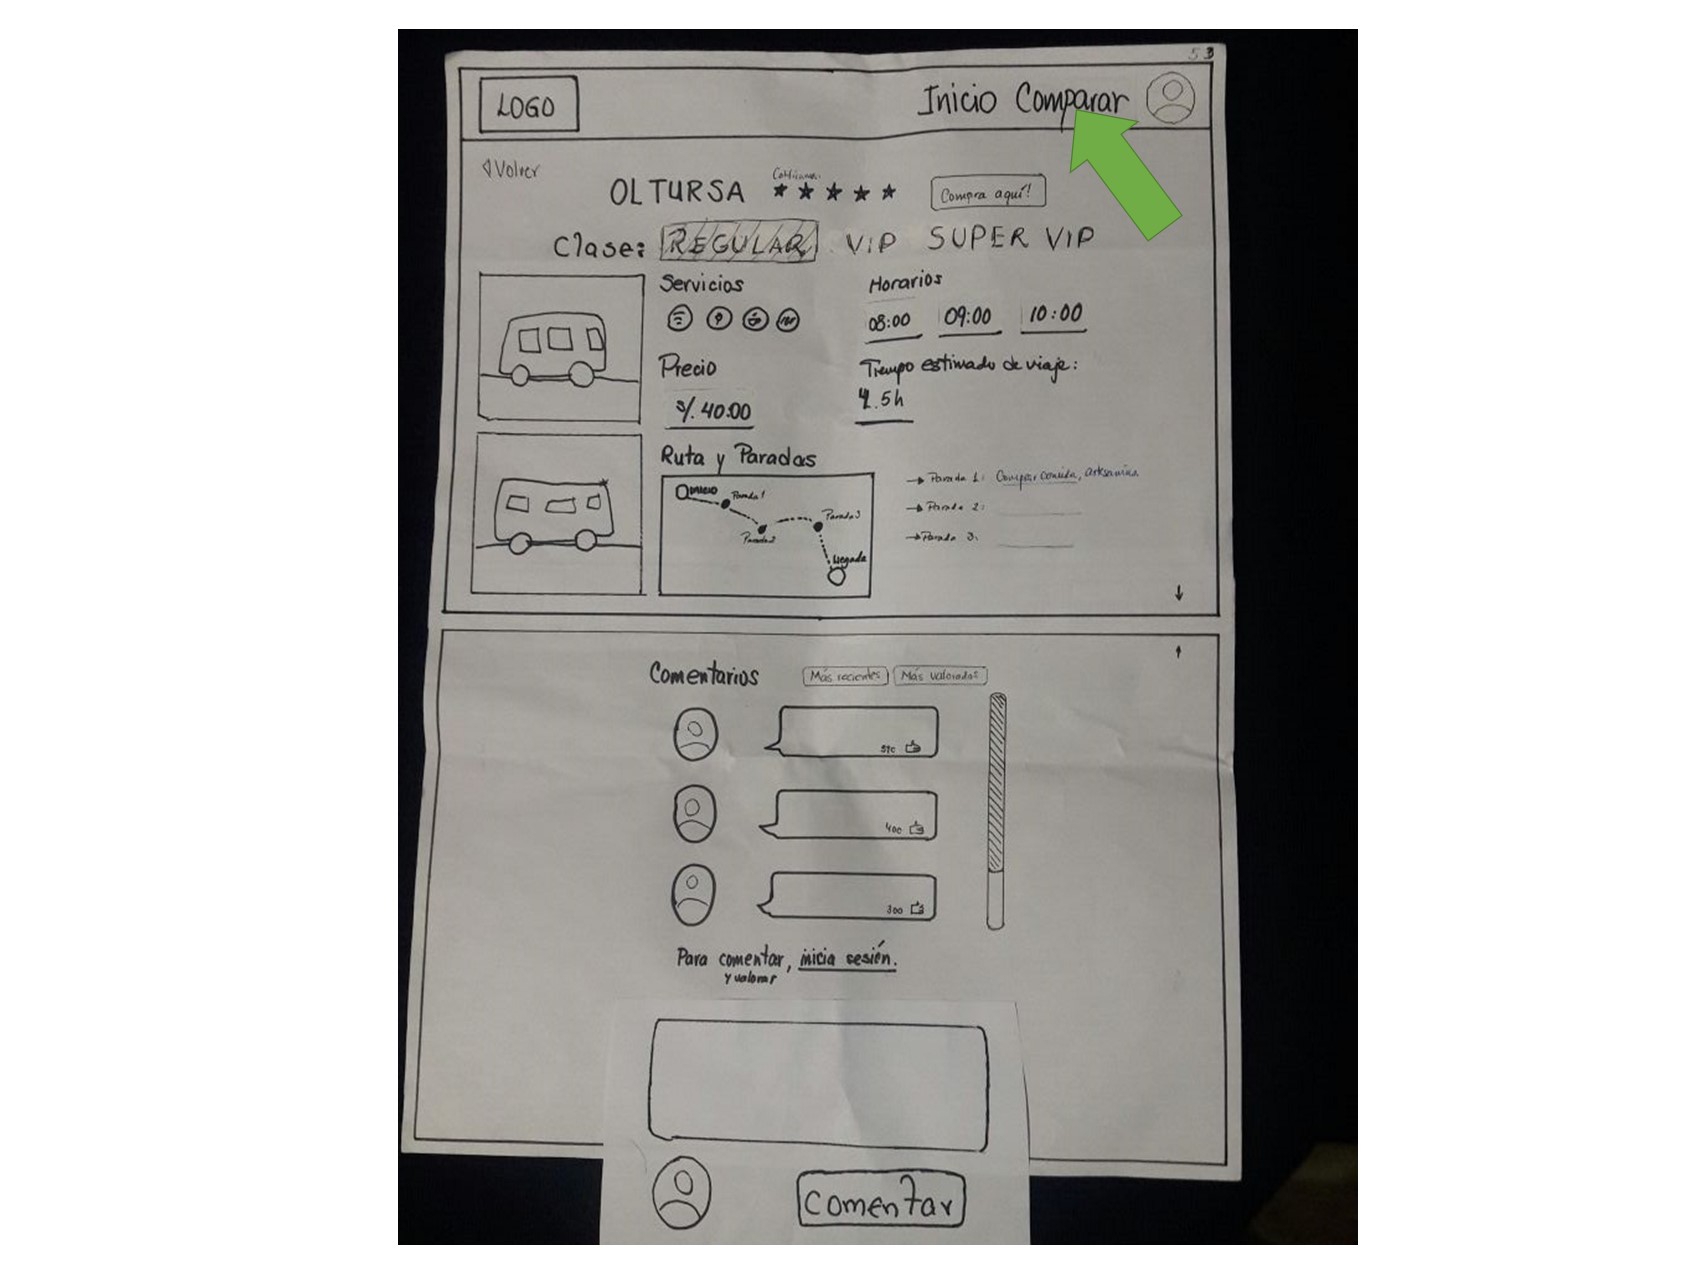 53
LOGO
Inicio Comparar
Volver
OLTURSA
Compra aquí!
Clase: REGULAR VIP SUPER VIP
Servicios
Horarios
08:00 09:00 10:00
Precio
Tiempo estimado de viaje:
S/. 40.00
.5h
Ruta y Paradas
Inicio
Parada 1
Parada 2
Parada 3
llegada
Parada 1: Comprar comida, artesanías
Parada 2:
Parada 3:
Comentarios
Más recientes
Más valorados
400
300
Para comentar, inicia sesión.
y valorar
Comentar